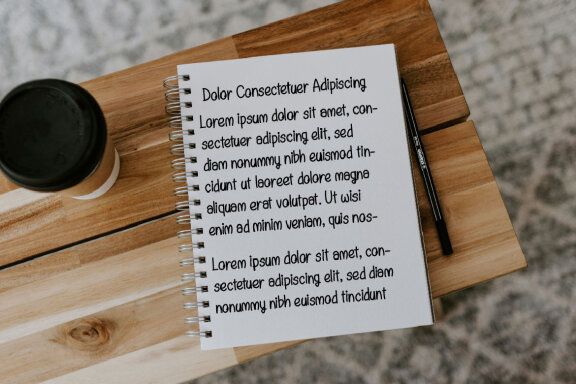 Dolor Consectetuer Adipiscing
Lorem ipsum dolor sit amet, con-
sectetuer adipiscing elit, sed
diam nonummy nibh euismod tin-
cidunt ut laoreet dolore magna
aliquam erat volutpat. Ut wisi
enim ad minim veniam, quis nos-
Lorem ipsum dolor sit amet, con-
sectetuer adipiscing elit, sed diam
nonummy nibh euismod tincidunt